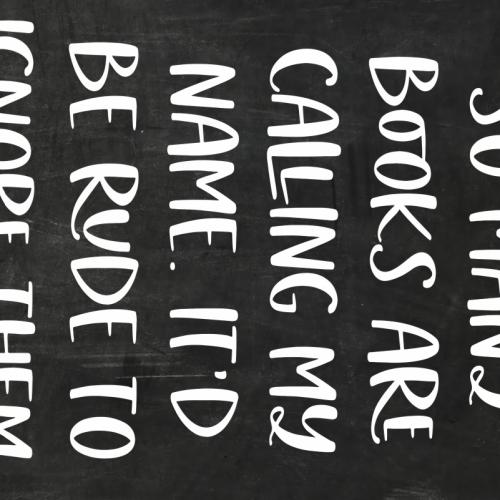 SO MANY
BOOKS ARE
CALLING MY
NAME. IT'D
BE RUDE TO
IGNORE THEM